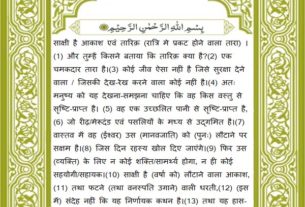 بِسْمِ اللهِ الرَّحْمٰنِ الرَّحِيْمِ
साक्षी है आकाश एवं तारिक़ (रात्रि में प्रकट होने वाला तारा) ।
(1) और तुम्हें किसने बताया कि तारिक़ क्या है?(2) एक
चमकदार तारा है।(3) कोई जीव ऐसा नहीं है जिसे सुरक्षा देने
वाला / जिसकी देख-रेख करने वाला कोई नहीं।(4) अतः
मनुष्य को यह देखना-समझना चाहिए कि वह किस वस्तु से
सृष्टि-प्राप्त है। (5) वह एक उच्छलित पानी से सृष्टि-प्राप्त है,
(6) जो रीढ़-मेरूदंड एवं पसलियों के मध्य से उद्गमित है।(7)
वास्तव में वह (ईश्वर) उस (मानवजाति) को (पुनः) लौटाने पर
सक्षम है।(8) जिस दिन रहस्य खोल दिए जाएंगे।(9) फिर उस
(व्यक्ति) के लिए न कोई शक्ति/सामर्थ्य होगा, न ही कोई
सहयोगी/सहायक।(10) साक्षी है (वर्षा को) लौटाने वाला आकाश,
(11) तथा फटने (तथा वनस्पति उगाने) वाली धरती,(12) (इस
में) संदेह नहीं कि यह निर्णायक कथन है।(13) तथा यह हास-